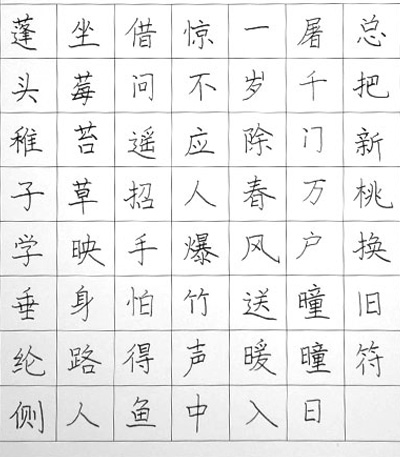 蓬头稚子学垂纶侧
坐莓苔草映身路人
借问遥招手怕得鱼
惊不应人爆竹声中
一岁除春风送暖入
屠千门万户曈曈日
总把新桃换旧符